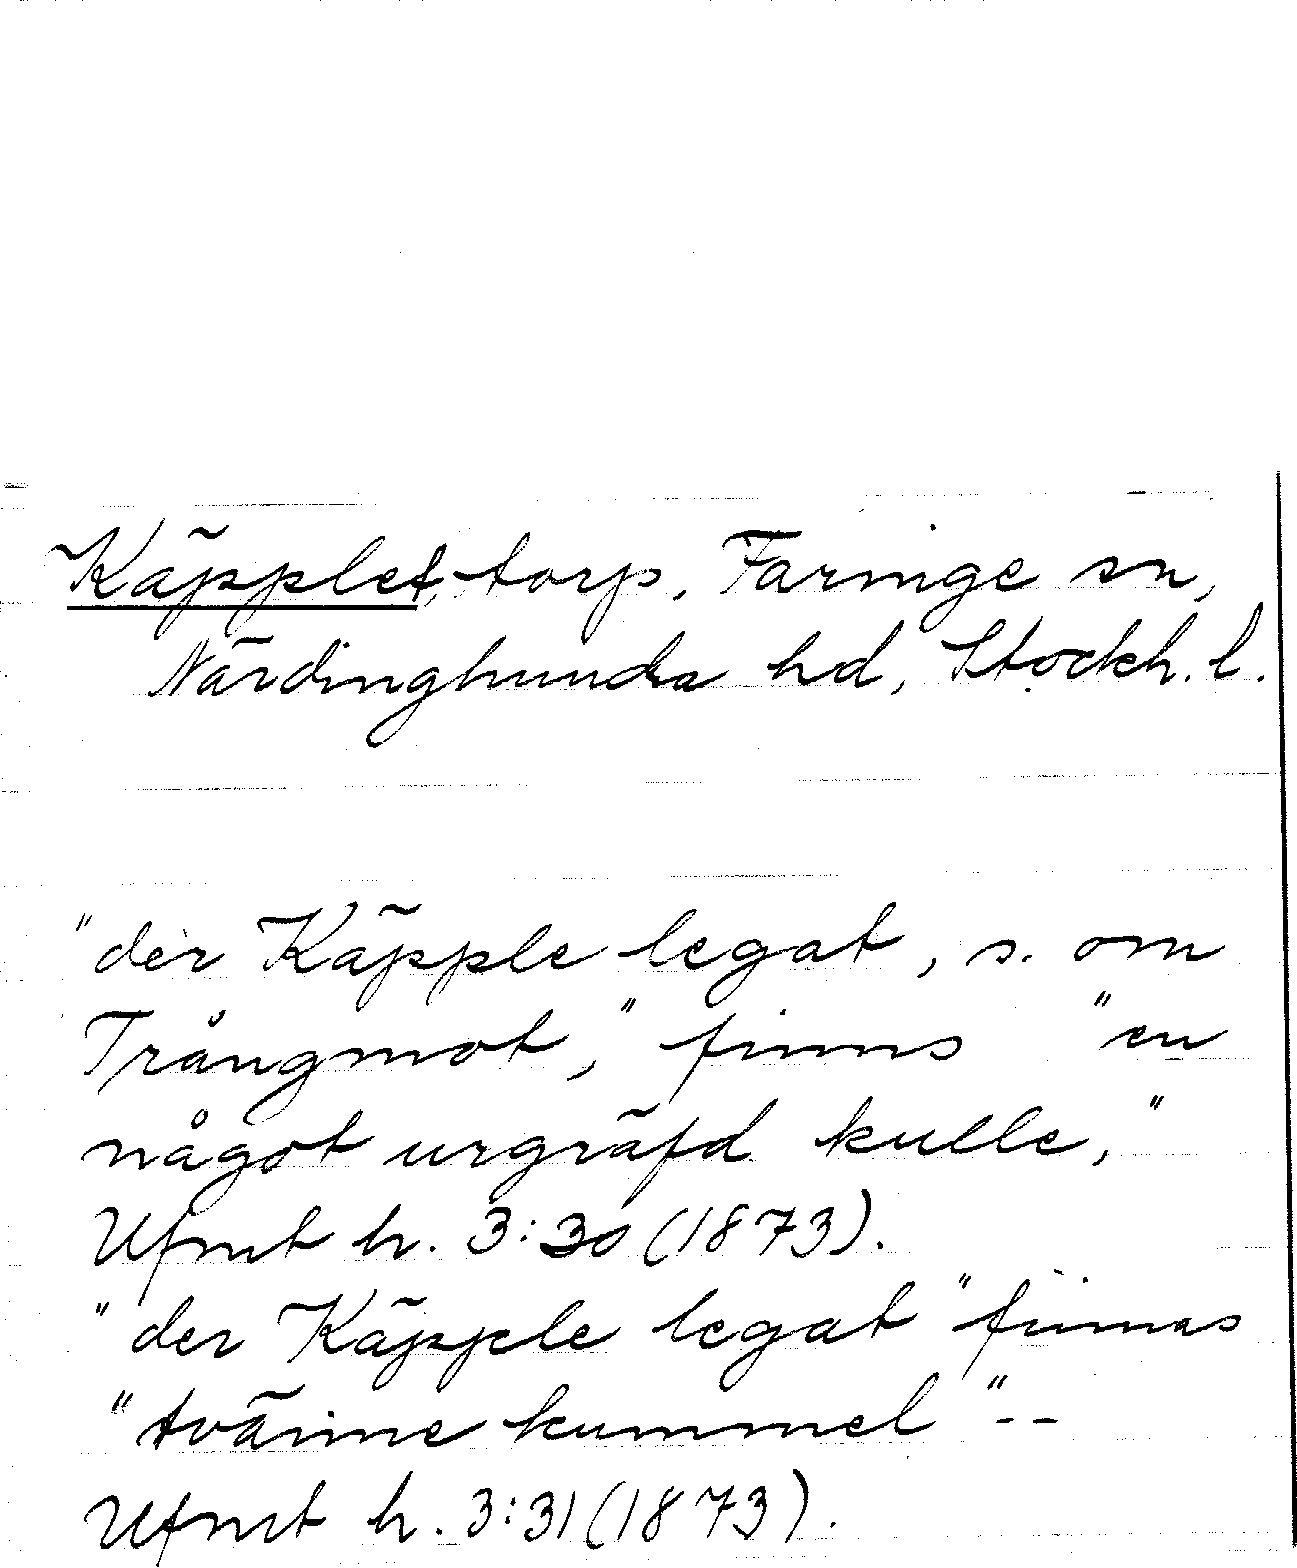 Käpplet, torp, Faringe sn,
Närdinghunda hd, Stockh. l.
"der Käpple legat, s. om
Trångmot," finns "en
något urgräfd kulle,"
Ufmt h. 3:30 (1873).
"der Käpple legat" finnas
"tvänne kummel" --
Ufmt h. 3:31 (1873).